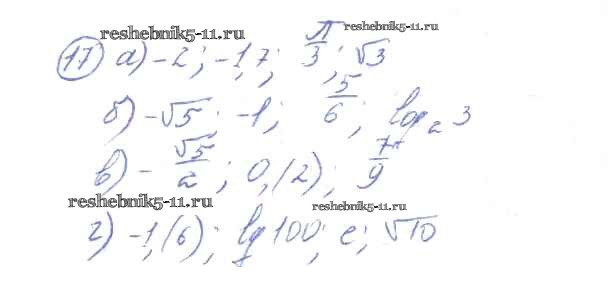 reshebnik5-11.ru
reshebnik5-11.ru
17 а) -2; -1,7; π/3; √3
б) -√5; -1; 5/6; log₂ 3
в) -√5/2; 0,(2); 7/9
reshebnik5-11.ru
reshebnik5-11.ru
г) -1,(6); lg 100; e; √10